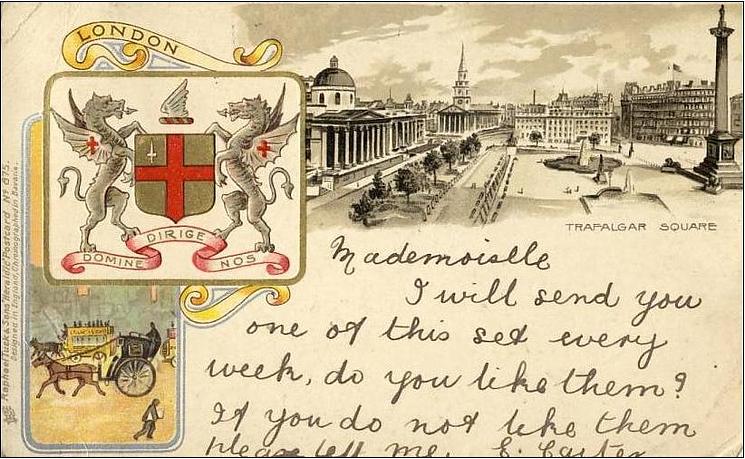 LONDON
DOMINE DIRIGE NOS
TRAFALGAR SQUARE
Raphael Tuck & Sons' Heraldic Postcard Nº 675.
Designed in England, Chromographed in Bavaria.
Mademoiselle
I will send you
one of this set every
week, do you like them?
If you do not like them
please tell me. E. Carter